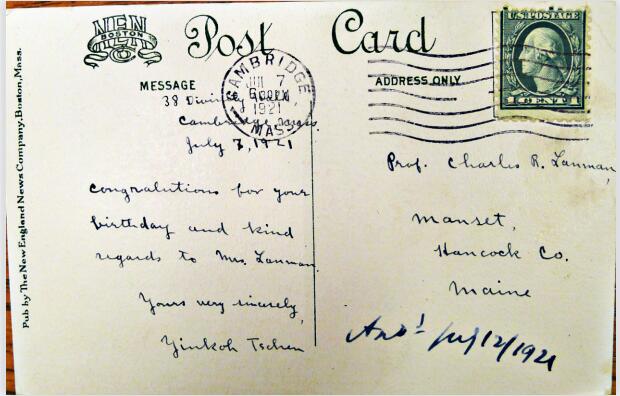 NEN
BOSTON
Post Card
MESSAGE
ADDRESS ONLY
U.S. POSTAGE
1 CENT 1
CAMBRIDGE
7
1921
MASS
38 Divinity
Cambridge, Mass.
July 7, 1921
congralutions for your
birthday and kind
regards to Mrs. Lanman.
Yours very sincerely,
Yinkoh Tschen
Prof. Charles R. Lanman,
Manset,
Hancock Co.
Maine
Ansd July 12/1921
Pub by The New England News Company, Boston, Mass.